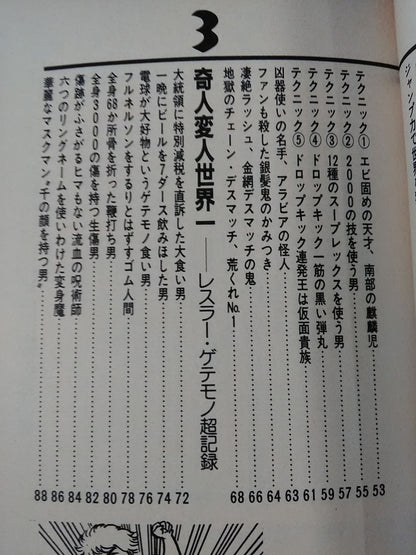 テクニック① エビ固めの天才、南部の麒麟児……53
テクニック② 2000の技を使う男……55
テクニック③ 12種のスープレックスを使う男……57
テクニック④ ドロップキック一筋の黒い弾丸……59
テクニック⑤ ドロップキック連発王は仮面貴族……61
凶器使いの名手、アラビアの怪人……63
ファンも殺した銀髪鬼のかみつき……64
凄絶ラッシュ、金網デスマッチの鬼……66
地獄のチェーン・デスマッチ、荒くれNo.1……68
3
奇人変人世界一――レスラー・ゲテモノ超記録
大統領に特別減税を直訴した大食い男……72
一晩にビールを7ダース飲みほした男……74
電球が大好物というゲテモノ食い男……76
フルネルソンをするりとはずすゴム人間……78
全身68か所骨を折った鞭打ち男……80
全身3000の傷を持つ生傷男……82
傷跡がふさがるヒマもない流血の呪術師……84
六つのリングネームを使いわけた変身魔……86
華麗なマスクマン“千の顔を持つ男”……88